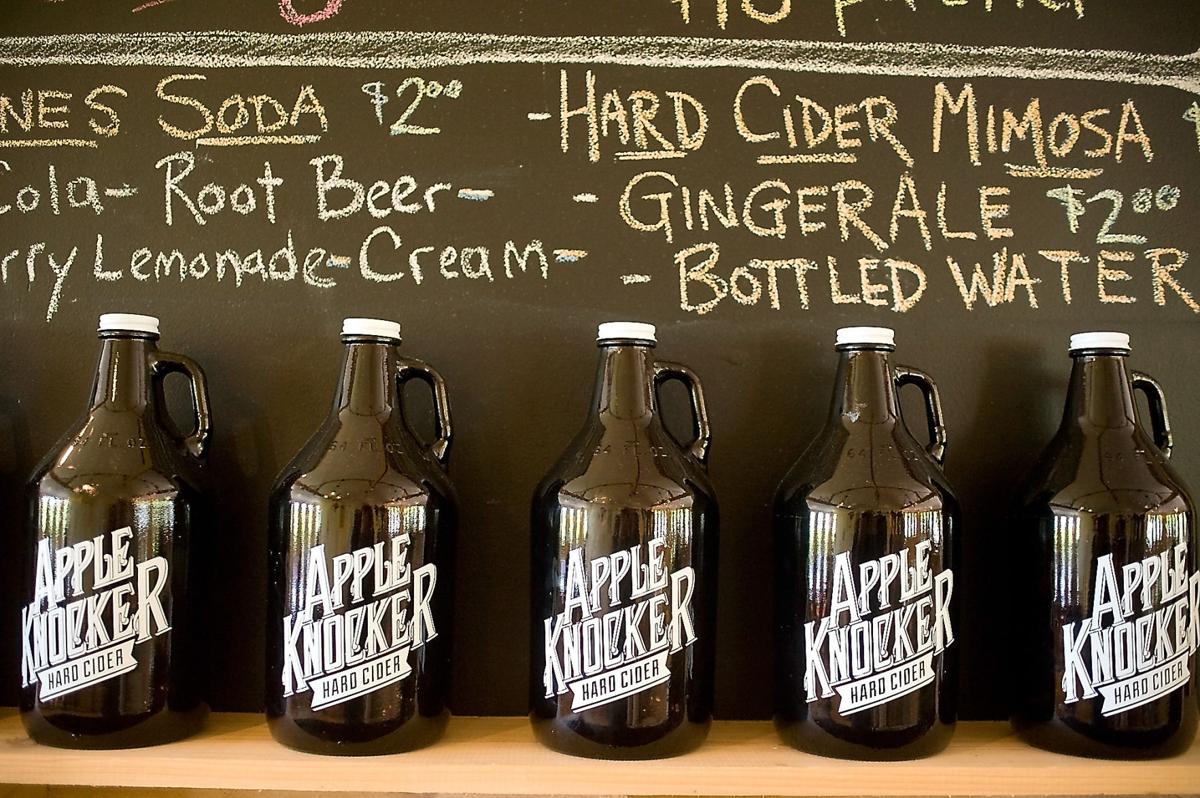 NES SODA $2.00
Cola- Root Beer-
rry Lemonade-Cream-
-HARD CIDER MIMOSA
- GINGERALE $2.00
- BOTTLED WATER
64 FL OZ
APPLE
KNOCKER
HARD CIDER
64 FL OZ
APPLE
KNOCKER
HARD CIDER
64 FL OZ
APPLE
KNOCKER
HARD CIDER
64 FL OZ
APPLE
KNOCKER
HARD CIDER
APPLE
KNOCKER
HARD CIDER